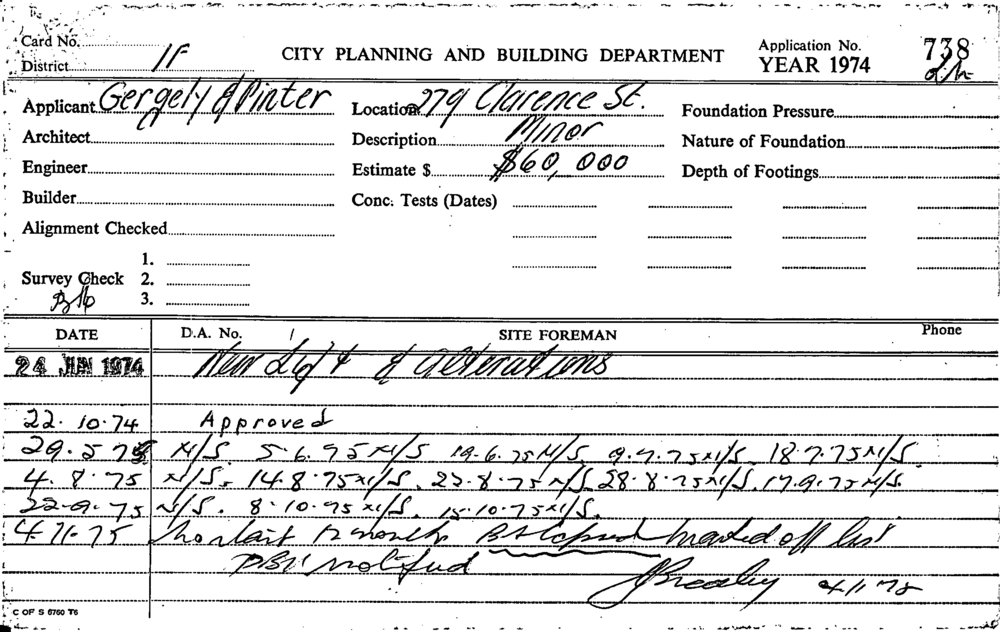 Card No.
District 1F
CITY PLANNING AND BUILDING DEPARTMENT
Application No. 738
YEAR 1974
Applicant Gergely & Pinter
Architect
Engineer
Builder
Alignment Checked
Survey Check
1.
2.
3.
Location 279 Clarence St.
Description Minor
Estimate $ $60,000
Conc. Tests (Dates)
Foundation Pressure
Nature of Foundation
Depth of Footings
DATE D.A. No. / SITE FOREMAN Phone
24 JUN 1974 New Lift & alterations
22.10.74 Approved
29.5.75 N/S. 5.6.75 N/S 19.6.75 N/S. 9.7.75 N/S. 18.7.75 N/S.
4.8.75 N/S. 14.8.75 N/S. 22.8.75 N/S. 28.8.75 N/S. 17.9.75 N/S.
22.9.75 N/S. 8.10.75 N/S. 15.10.75 N/S.
4-11-75 12 months marked off list
notified 4/11/75
C OF S 6760 T6